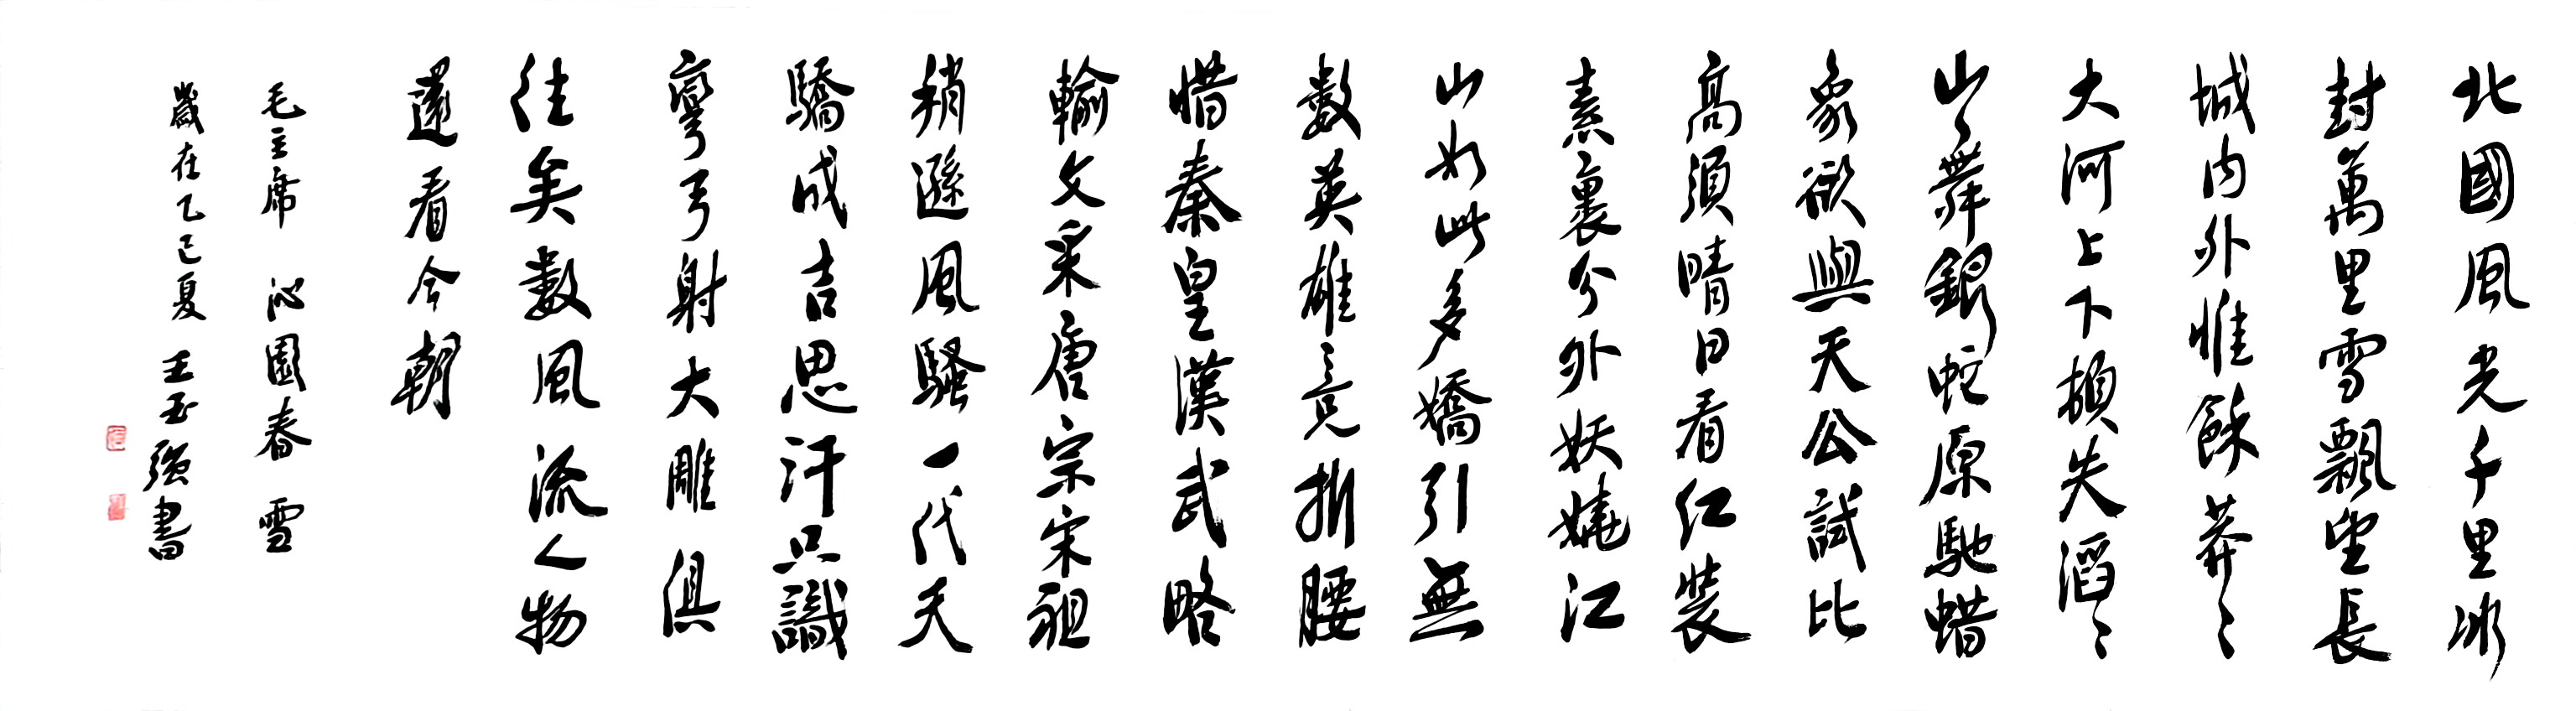 北國風光千里冰
封萬里雪飄望長
城内外惟餘莽〻
大河上下頓失滔〻
山舞銀蛇原馳蜡
象欲與天公試比
高須晴日看红裝
素裹分外妖嬈江
山如此多嬌引無
數英雄竞折腰
惜秦皇漢武略
輸文采唐宗宋祖
稍遜風騷一代天
驕成吉思汗只識
彎弓射大雕俱
往矣數風流人物
還看今朝
毛主席 沁園春 雪
歲在乙巳夏 王玉强書